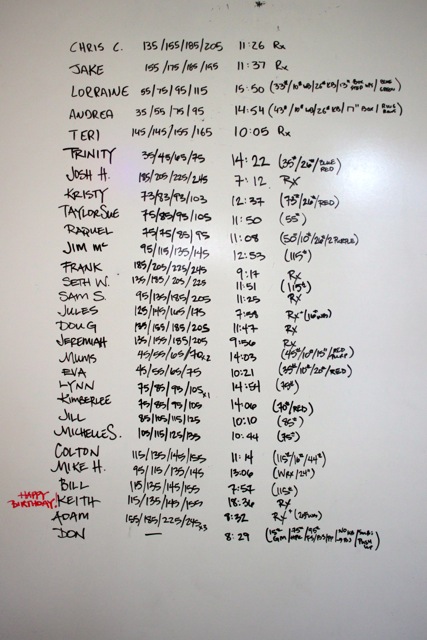 CHRIS C. 135/155/185/205 11:26 Rx
JAKE 155/175/185/195 11:37 Rx
LORRAINE 55/75/95/115 15:50
ANDREA 35/55/75/95 14:54
TERI 145/145/155/165 10:05 Rx
TRINITY 35/45/65/75 14:22 (35#/26#/BLUE RED)
JOSH H. 185/205/225/245 7:12 Rx
KRISTY 73/83/93/103 12:37 (75#/26#/RED)
TAYLOR SUE 75/85/95/105 11:50 (55#)
RAQUEL 75/75/85/95 11:08
JIM MC 95/115/135/145 12:53 (115#)
FRANK 185/205/225/245 9:17 Rx
SETH W. 135/185/205/225 11:51 (115#)
SAM S. 95/135/185/205 11:25 Rx
JULES 125/145/165/175 7:58
DOUG 11:47 Rx
JEREMIAH 135/155/185/205 9:56 Rx
MUMS 45/55/65/70x2 14:03
EVA 45/55/65/75 10:21 (35#/10#/20#/RED)
LYNN 75/85/95/105x1 14:54 (75#)
KIMBERLEE 75/85/95/105 14:06 (70#/RED)
JILL 85/105/115/125 10:10 (85#)
MICHELLE S. 105/115/125/135 10:44 (75#)
COLTON 115/135/145/155 11:14 (115#/16#/44#)
MIKE H. 95/115/135/145 13:06
BILL 115/135/145/155 7:57 (115#)
HAPPY BIRTHDAY! KEITH 115/135/145/155 18:36 Rx
ADAM 155/185/225/245x3 8:32 Rx+
DON — 8:29